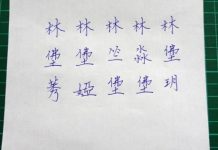 林 林 林 林 林
堡 堡 竺 淼 堡
婭 堡 堡 玥